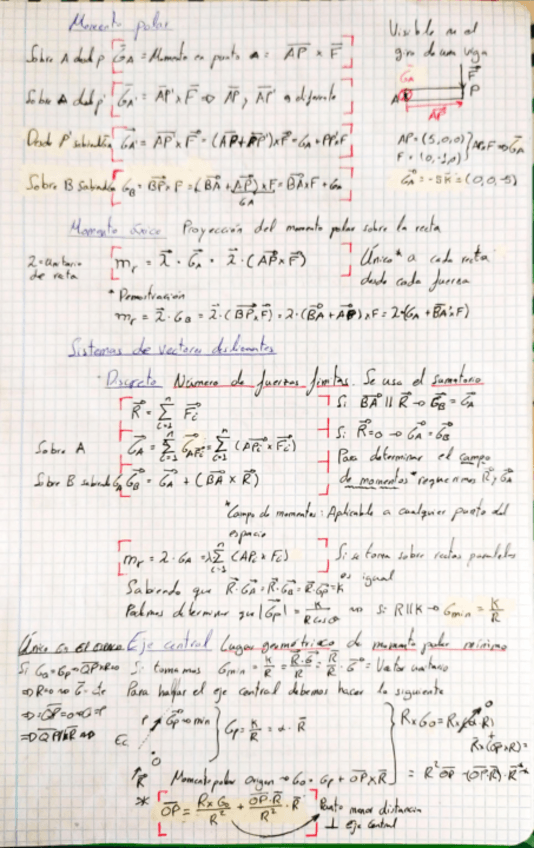 Momento polar
Visible en el
giro de una viga
Sobre A desde P G_A = Momento en punto A = AP × F
Sobre A desde P' G_A' = AP' × F ⇒ AP, AP' es diferente
F
P
A
AP
Desde P' sabiendo G_A' = AP' × F = (AP + PP') × F = G_A + PP' × F
AP = (5,0,0)
F = (0,-1,0)
AP × F ⇒ G_A
Sobre B sabiendo G_B = BP × F = (BA + AP) × F = BA × F + G_A
G_A
G_A = -5K = (0,0,-5)
Momento áxico Proyección del momento polar sobre la recta
λ = unitario
de recta
m_r = λ · G_A = λ · (AP × F)
Único* a cada recta
desde cada fuerza
* Demostración
m_r = λ · G_B = λ · (BP × F) = λ · (BA + AP) × F = λ · (G_A + BA × F)
Sistemas de vectores deslizantes
· Discreto Número de fuerzas finitas. Se usa el sumatorio
R = Σ F_i
Si BA || R → G_B = G_A
Sobre A G_A = Σ G_APi = Σ (AP_i × F_i)
Si R = 0 → G_A = G_B
Sobre B sabiendo G_A G_B = G_A + (BA × R)
Para determinar el campo
de momentos* requerimos R y G_A
*Campo de momentos: Aplicable a cualquier punto del
espacio
m_r = λ · G_A = λ Σ (AP_i × F_i)
Si se toma sobre rectas paralelas
es igual
Sabiendo que R · G_A = R · G_B = R · G_P = K
Podemos determinar que |G_P| = K / R cos θ → Si R || K → G_min = K / R
Único en el espacio Eje central Lugar geométrico de momento polar mínimo
Si tomamos G_min = K / R = R · G / R = R / R · G = Vector unitario
Para hallar el eje central debemos hacer lo siguiente
P G_P → min
Ec
O
G_P = K / R = α · R
R × G_0 = R ×
R
Momento polar Origen → G_0 = G_P + OP × R
= R² OP - (OP · R) · R
* OP = R × G_0 / R² + OP · R / R² · R
Punto menor distancia
⊥ Eje central